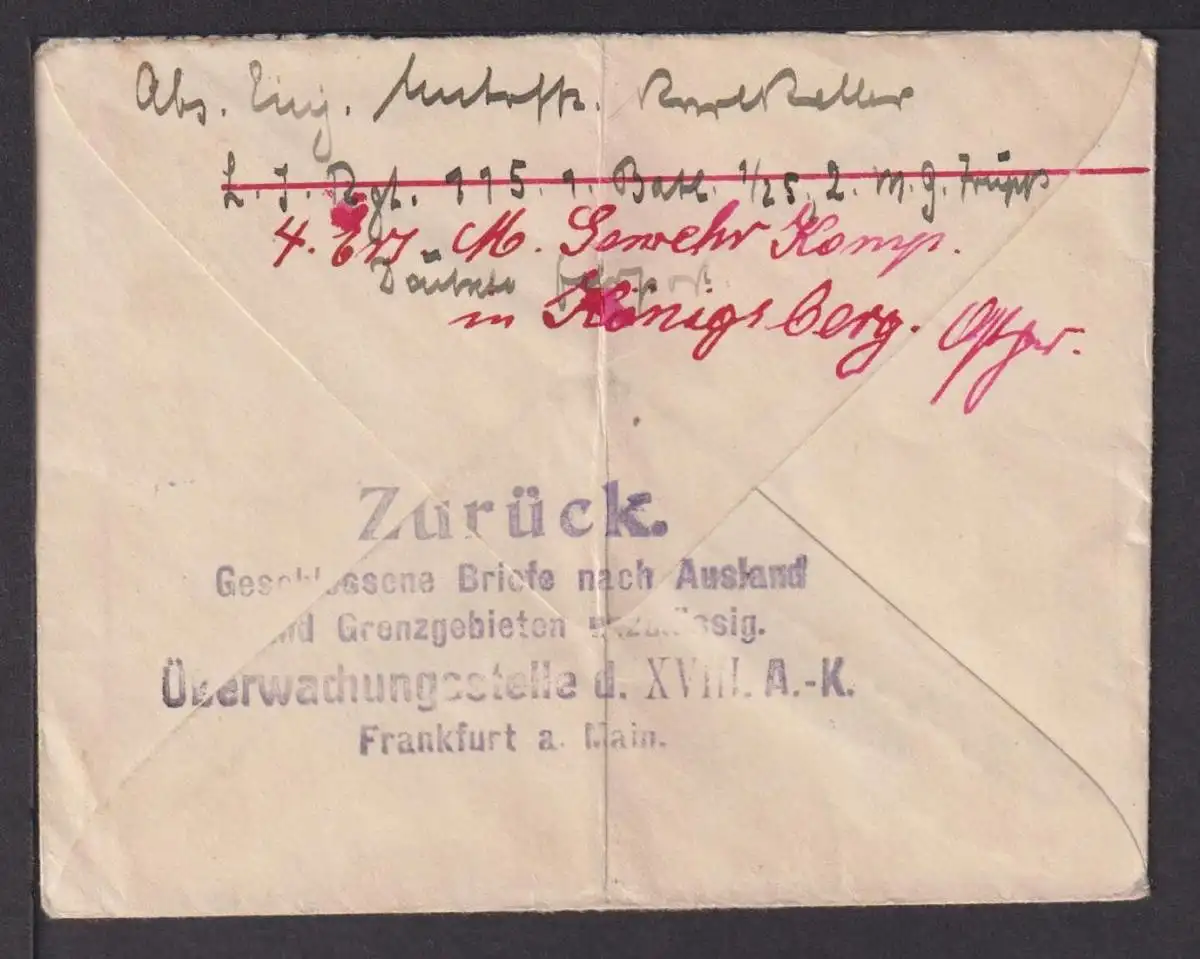 Abs. Einj. Unteroffz. Karl Keller
L. I. Rgt. 115. 1. Batl. 1/25, 2. M. G. Trupp
4. Ers. M. Gewehr Komp.
Deutsche Feldpost
in Königsberg. Ostpr.
Zurück.
Geschlossene Briefe nach Ausland
und Grenzgebieten unzulässig.
Überwachungsstelle d. XVIII. A.-K.
Frankfurt a. Main.